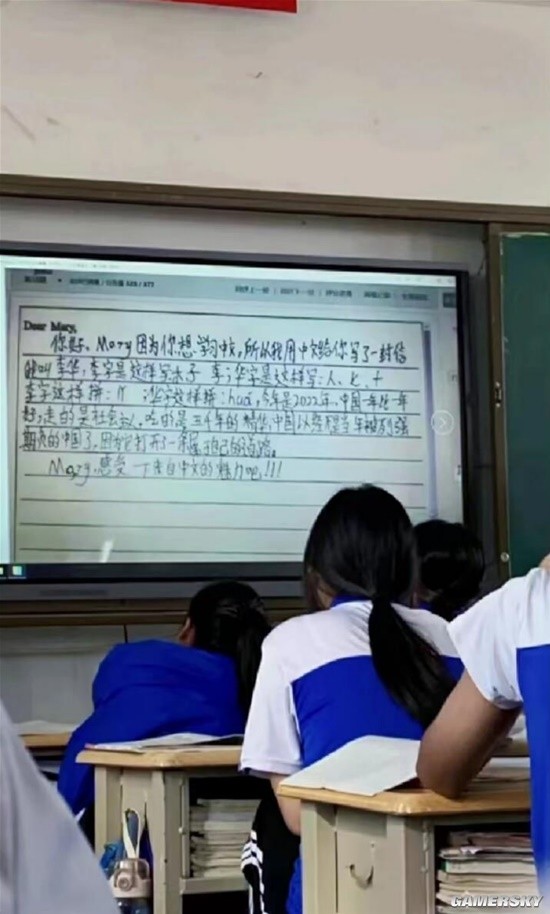 Dear Mary,
你好、Mary因为你想学习中文,所以我用中文给你写了一封信
李华,李字是这样写木子 李;华字是这样写:人、匕、十
李字这样拼:li ;华字这样拼:hua,今年是2022年,中国一年比一年
好,走的是社会主义,吃的是五千年的精华,中国 不是当年被列强
欺负的中国了,因为它打开了一条属于自己的道路。
Mary,感受一下来自中文的魅力吧!!!
GAMERSKY